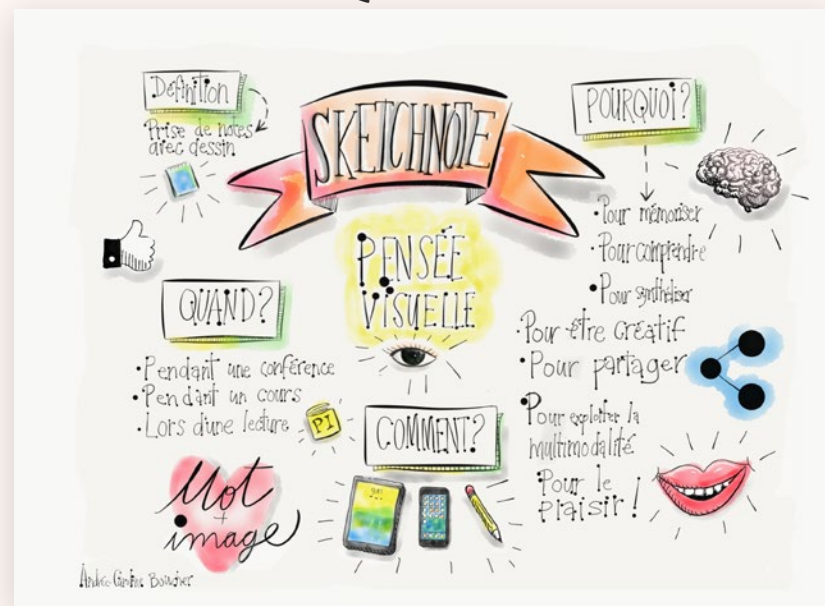 Définition
Prise de notes
avec dessin
SKETCHNOTE
PENSÉE
VISUELLE
POURQUOI?
• Pour mémoriser
• Pour comprendre
• Pour synthétiser
• Pour être créatif
• Pour partager
• Pour exploiter la
multimodalité
• Pour le
plaisir!
QUAND?
• Pendant une conférence
• Pendant un cours
• Lors d'une lecture
PI
COMMENT?
Mot
+
image
Andrée-Caroline Boucher